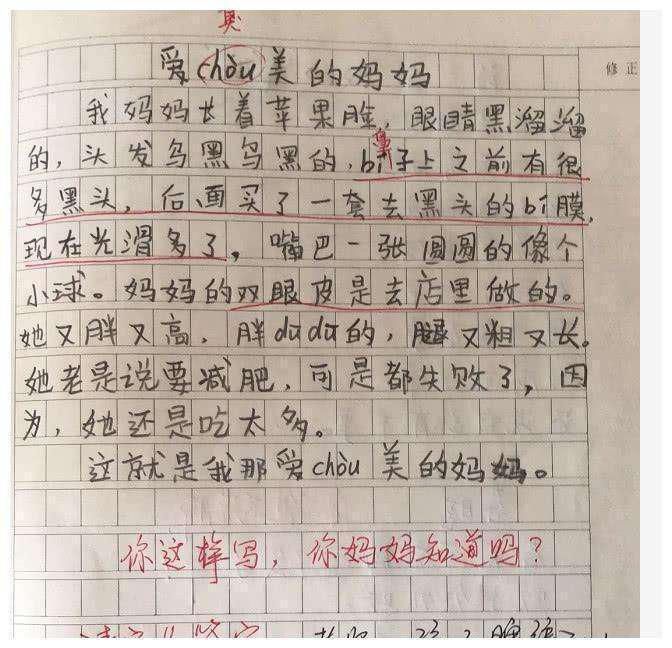 臭
爱chòu美的妈妈
修正
我妈妈长着苹果脸,眼睛黑溜溜
的,头发乌黑乌黑的,bí子上之前有很
鼻
多黑头,后面买了一套去黑头的bí膜,
现在光滑多了,嘴巴一张圆圆的像个
小球。妈妈的双眼皮是去店里做的。
她又胖又高,胖dūdū的,腿又粗又长。
她老是说要减肥,可是都失败了,因
为,她还是吃太多。
这就是我那爱chòu美的妈妈。
你这样写,你妈妈知道吗?